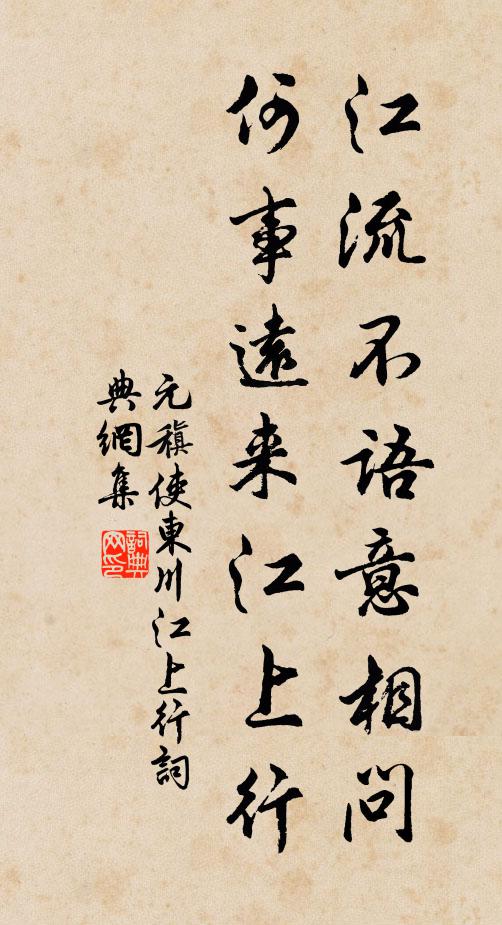 江流不語意相問
何事遠来江上行
元稹使東川江上行詞
典網集
詞典网印